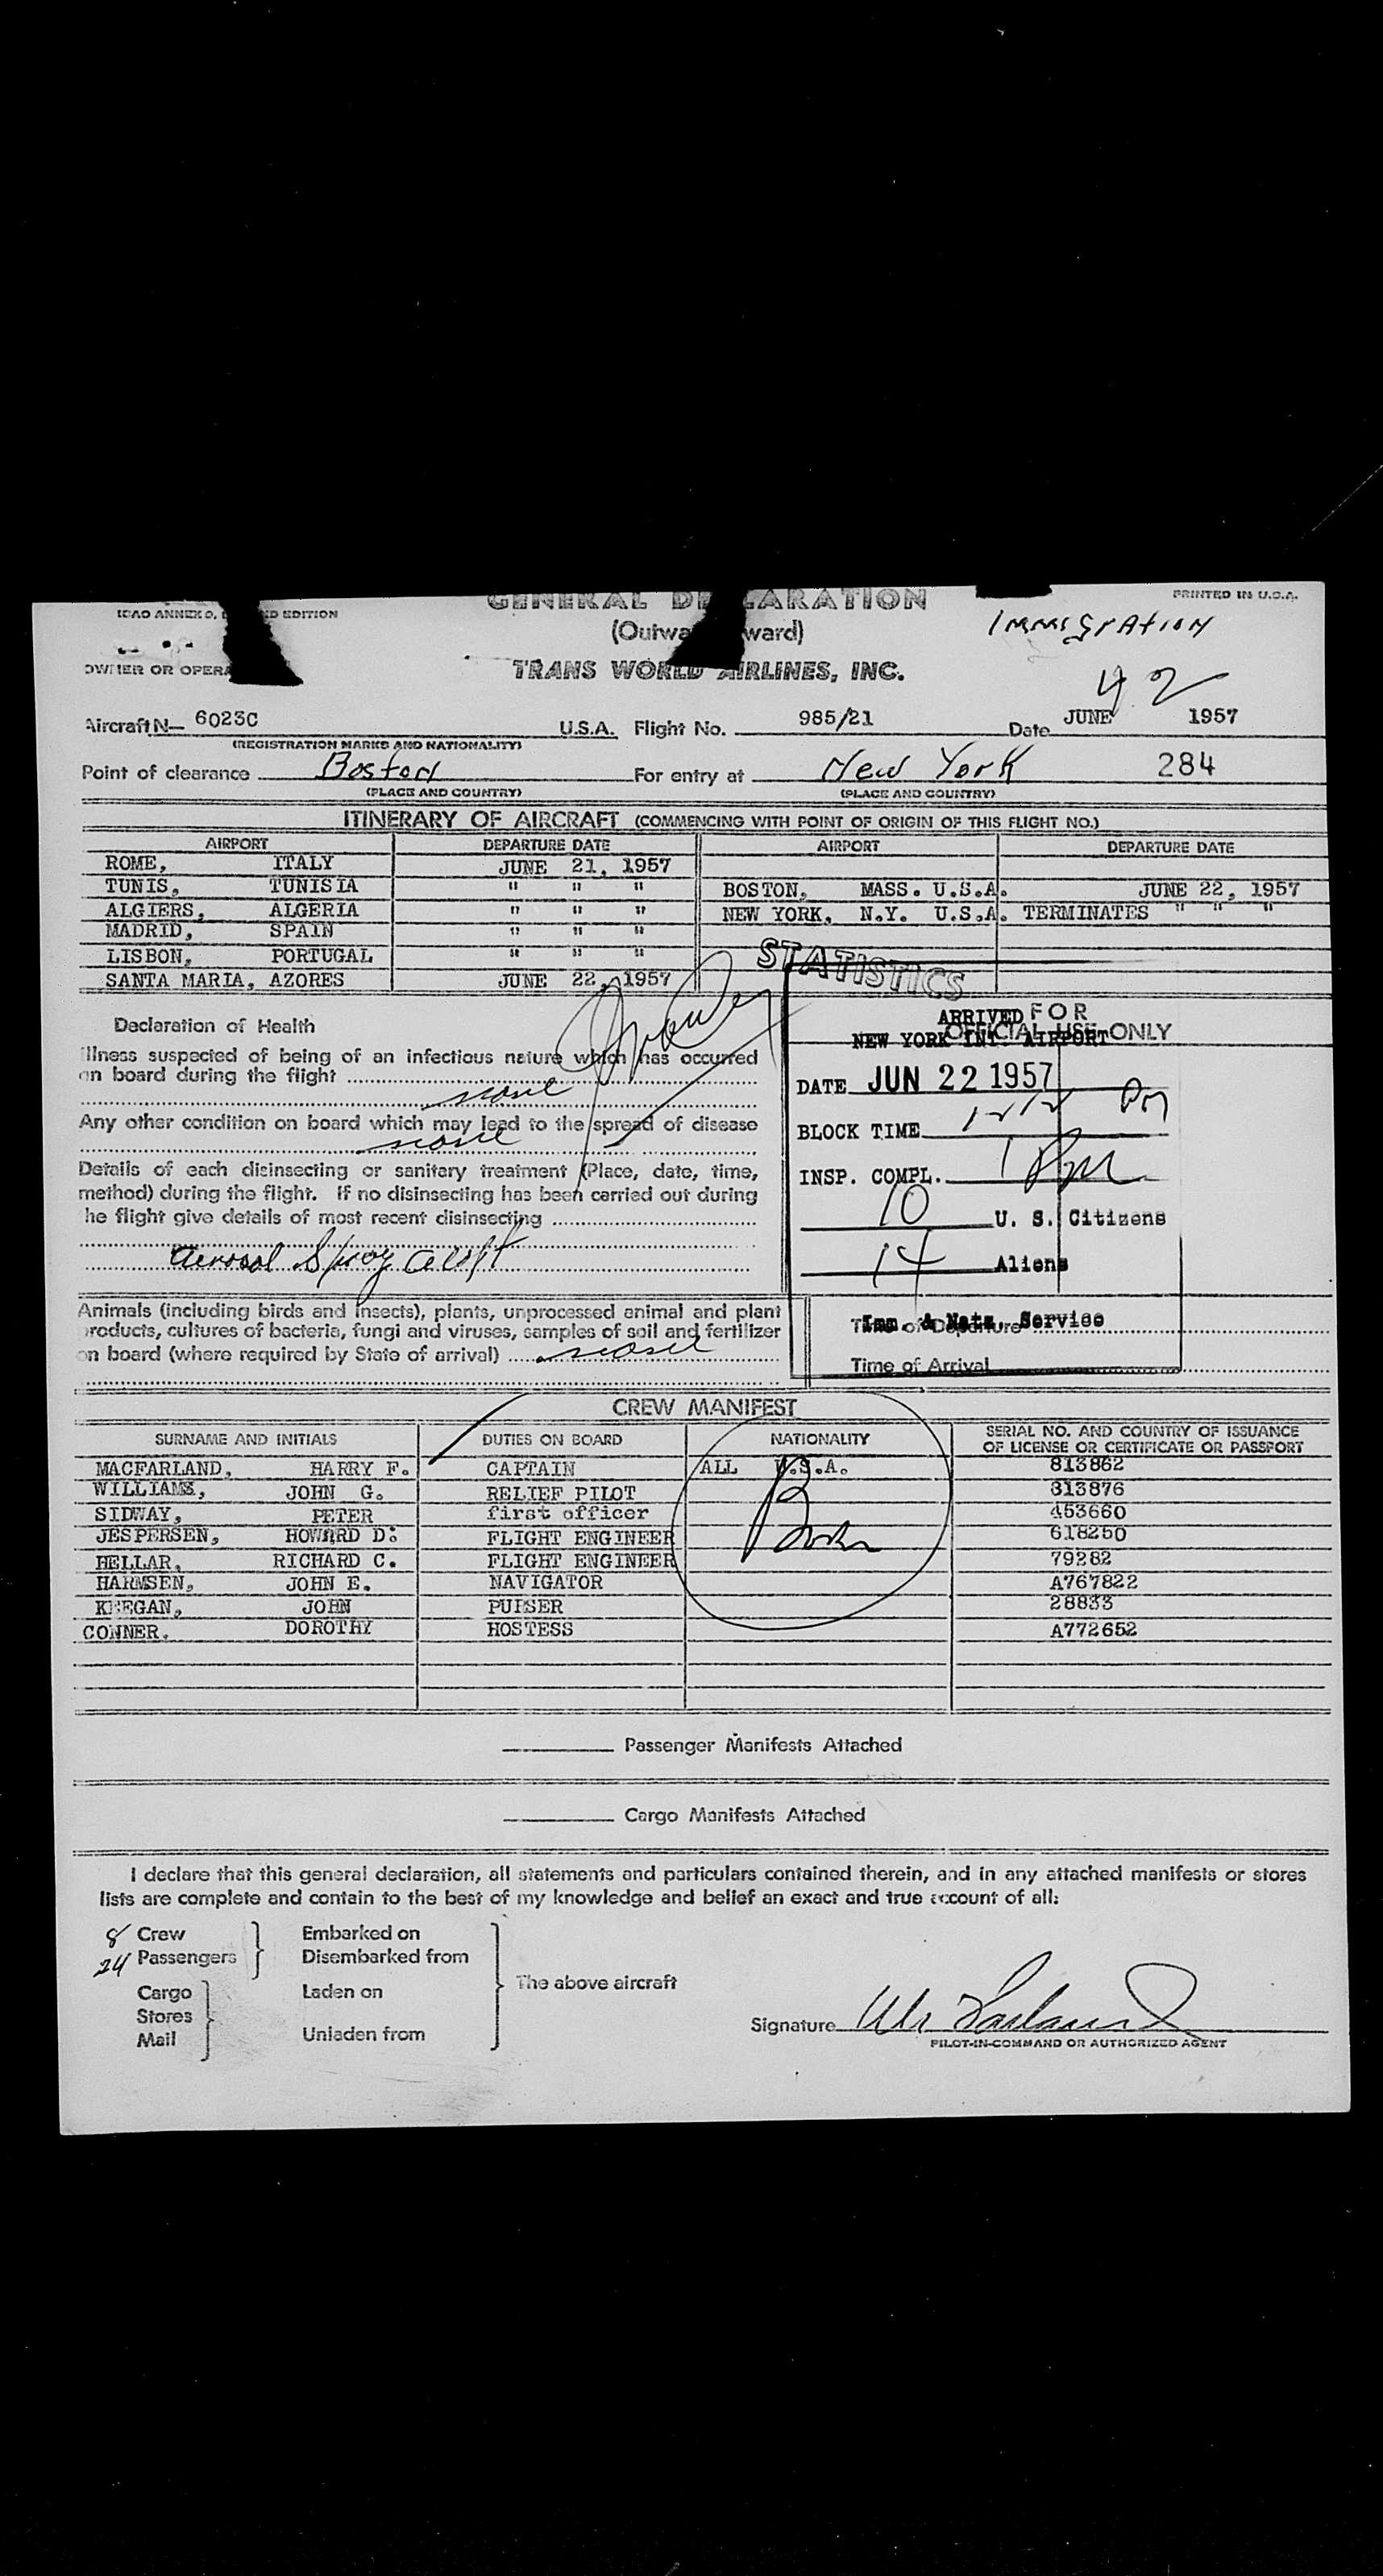 GENERAL DECLARATION
PRINTED IN U.S.A.
EDITION
(Outwa ward)
Immigration
TRANS WORLD AIRLINES, INC.
42
Aircraft N— 6023C U.S.A. Flight No. 985/21 Date JUNE 1957
(REGISTRATION MARKS AND NATIONALITY)
Point of clearance Boston For entry at New York 284
(PLACE AND COUNTRY) (PLACE AND COUNTRY)
ITINERARY OF AIRCRAFT (COMMENCING WITH POINT OF ORIGIN OF THIS FLIGHT NO.)
AIRPORT DEPARTURE DATE AIRPORT DEPARTURE DATE
ROME, ITALY JUNE 21, 1957
TUNIS, TUNISIA " " " BOSTON, MASS. U.S.A. JUNE 22, 1957
ALGIERS, ALGERIA " " " NEW YORK, N.Y. U.S.A. TERMINATES " " "
MADRID, SPAIN " " "
LISBON, PORTUGAL " " "
SANTA MARIA, AZORES JUNE 22, 1957
STATISTICS
Declaration of Health
Illness suspected of being of an infectious nature which has occurred
on board during the flight
none
Any other condition on board which may lead to the spread of disease
none
Details of each disinsecting or sanitary treatment (Place, date, time,
method) during the flight. If no disinsecting has been carried out during
he flight give details of most recent disinsecting
Aerosol Spray aloft
Animals (including birds and insects), plants, unprocessed animal and plant
products, cultures of bacteria, fungi and viruses, samples of soil and fertilizer
on board (where required by State of arrival) none
FOR
OFFICIAL USE ONLY
ARRIVED
NEW YORK INT. AIRPORT
DATE JUN 22 1957
BLOCK TIME 1212 Pm
INSP. COMPL. 1 Pm
10 U. S. Citizens
14 Aliens
Imm. & Natz. Service
Time of Departure
Time of Arrival
CREW MANIFEST
SURNAME AND INITIALS DUTIES ON BOARD NATIONALITY SERIAL NO. AND COUNTRY OF ISSUANCE
OF LICENSE OR CERTIFICATE OR PASSPORT
MACFARLAND, HARRY F. CAPTAIN ALL U.S.A. 813862
WILLIAMS, JOHN G. RELIEF PILOT 313876
SIDWAY, PETER first officer 453660
JESPERSEN, HOWARD D. FLIGHT ENGINEER 618250
HELLAR, RICHARD C. FLIGHT ENGINEER 79282
HARMSEN, JOHN E. NAVIGATOR A767822
KEEGAN, JOHN PURSER 28833
CONNER, DOROTHY HOSTESS A772652
Passenger Manifests Attached
Cargo Manifests Attached
I declare that this general declaration, all statements and particulars contained therein, and in any attached manifests or stores
lists are complete and contain to the best of my knowledge and belief an exact and true account of all:
8 Crew Embarked on
24 Passengers Disembarked from
The above aircraft
Cargo Laden on
Stores
Mail Unladen from
Signature
PILOT-IN-COMMAND OR AUTHORIZED AGENT